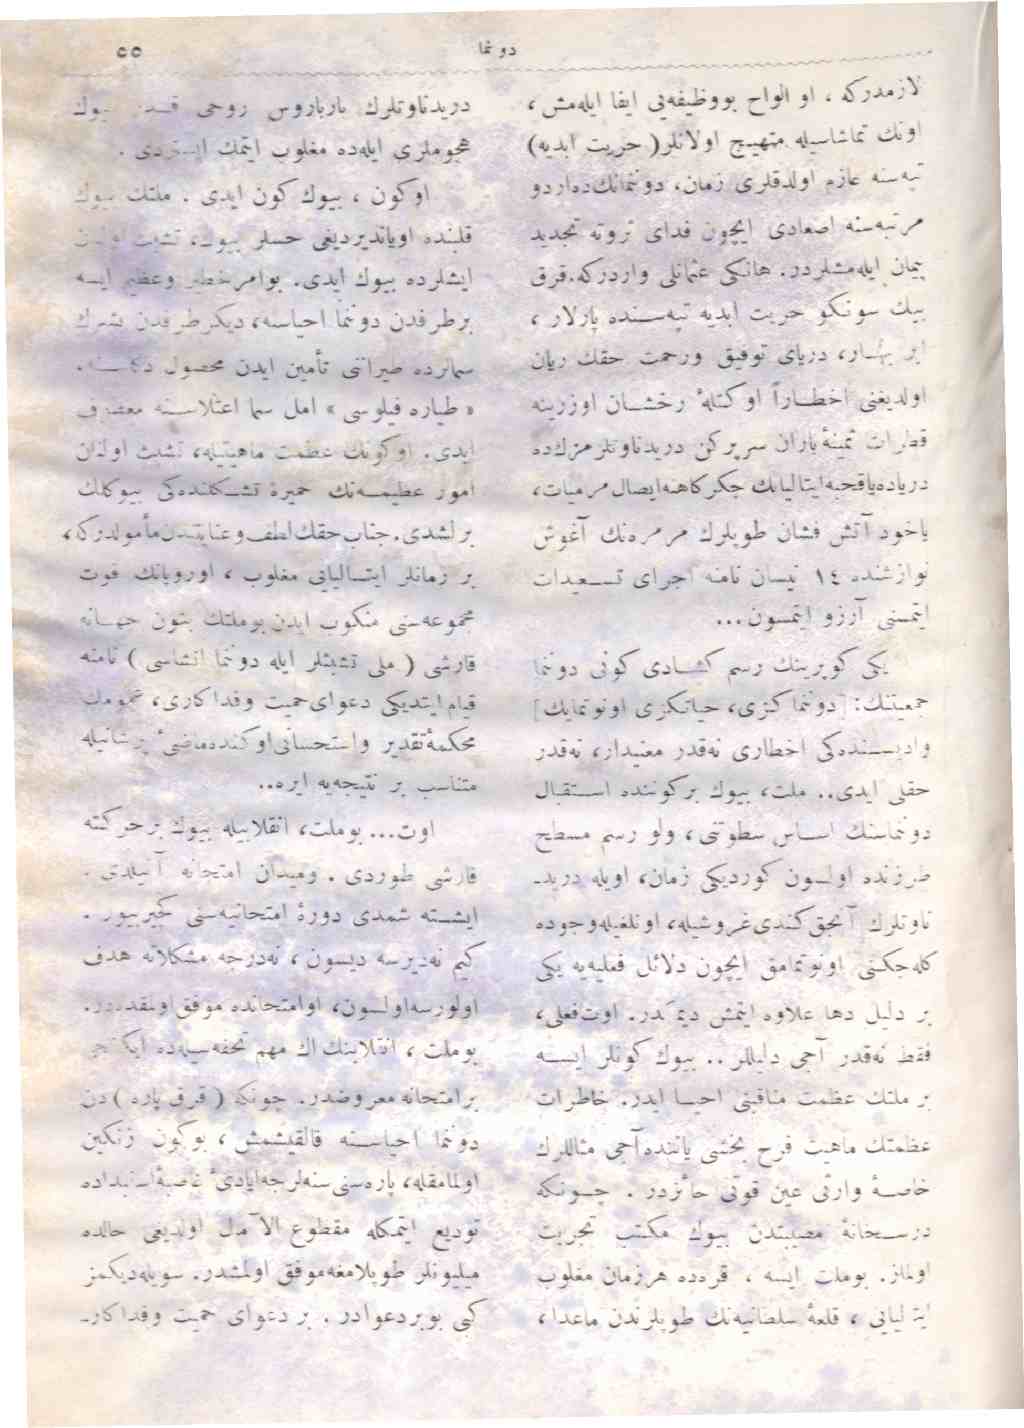 دونما
٥٥
لازمدرکه ، او الواح بووظیفه‌یی ایفا ایله‌مش ،
اونك تماشاسیله متهییج اولانلر( حریت ابدیه)
تپه‌سنه عازم اولدقلری زمان، دونمانك‌ده‌اردو
مرتبه‌سنه اصعادی ایچون فدای ثروته تجدید
پیمان ایله‌مشلردر. هانکی عثمانلی واردرکه،قرق
بیك سونکو حریت ابدیه تپه‌سنده پارلار ،
بهار، دریای توفیق ورحمت حقك ریان
اولدیغنی اخطاراً اوکتلهٔ رخشان اوزرینه
قطرات ثمینهٔ باران سرپرکن دریدناوتلرمزك‌ده
دریاده‌یاقحبه‌ایتالیانك جکرکاهنه‌ایصال‌مرمیات،
یاخود آتش فشان طوپلرك مرمره‌نك آغوش
نوازشنده ١٤ نیسان نامنه اجرای تسعیدات
ایتمسنی آرزو ایتمسون...
یکی کوپرینك رسم کشادی کونی دونما
جمعیتنك: [دونماکزی، حیاتکزی اونوتمایك]
وادیسنده‌کی اخطاری نه‌قدر معنیدار، نه‌قدر
حقلی ایدی.. ملت، بیوك برکوننده استقبال
دونماسنك اساس سطوتنی، ولو رسم مسطح
طرزنده اولسون کوردیکی زمان، اویله درید-
ناوتلرك آنجق‌کندی‌غروشیله، اونلغیله‌وجوده
کله‌جکنی اونوتمامق ایچون دلائل فعلیه‌یه یکی
بر دلیل دها علاوه ایتمش دیمکدر. اوت‌فعلی،
فقط نه‌قدر آجی دلیللر .. بیوك کونلر ایسه
بر ملتك عظمت مناقبنی احیا ایدر. خاطرات
عظمتك ماهیت فرح بخشی یاننده‌آجی مثاللرك
خاصهٔ وارثی عین قوتی حائزدر . چونکه
درسخانهٔ مصیبتدن بیوك مکتب تجربت
اولماز. بوملت ایسه ، قره‌ده هرزمان مغلوب
ایتالیانی ، قلعهٔ سلطانیه‌نك طوپلرندن ماعدا،
دریدناوتلرك بارباروس روحی بیوك
هجوملری ایله‌ده مغلوب ایتمك ایستردی .
اوکون ، بیوك کون ایدی . ملتك بیوك
قلبنده اویاندیردیغی حسلر بیوك، تشبث
ایشلرده بیوك ایدی. بوامرخطیر وعظیم ایسه
برطرفدن دونما احیاسنه، دیکرطرفدن
سمالرده طیراننی تأمین ایدن محصول
« طیاره فیلوسی » امل سما اعتلاسنه معطوف
ایدی. اوکونك عظمت ماهیتیله، تشبث اولنان
امور عظیمه‌نك خمیرهٔ تشکلنده‌کی بیوکلك
برلشدی.جناب‌حقك‌لطف‌وعنایتندن‌مأمولدرکه،
بر زمانلر ایتالیانی مغلوب ، اوروپانك قوت
مجموعه‌سنی منکوب ایدن بوملتك بتون جهانه
قارشی ( ملی تشبثلر ایله دونما انشاسی ) نامنه
قیام‌ایتدیکی دعوای‌حمیت وفداکاری،
محکمهٔ‌تقدیر واستحسانی‌اوکنده‌ماضیٔ پرشانیله
متناسب بر نتیجه‌یه ایره..
اوت... بوملت، انقلابیله بیوك‌برحرکته
قارشی طوردی . ومیدان امتحانه آتیلدی .
ایشته شمدی دورهٔ امتحانیه‌سنی کچیرییور .
کیم نه‌دیرسه دیسون ، نه‌درجه مشکلاته هدف
اولورسه‌اولسون، اوامتحانده موفق‌اولمقده‌در.
بوملت ، انقلابنك اك مهم تحفه‌سیله‌ده ایکنجی
برامتحانه‌معروضدر. چونکه ( قرق پاره ) دن
دونما احیاسنه قالقیشمش ، بوکون زنکین
اولمامقله، پاره‌سنی‌سنه‌لرجه‌ایادیٔ غاصبهٔ‌استبداده
تودیع ایتمکله مقطوع الآمال اولدیغی حالده
میلیونلر طوپلامغه‌موفق اولمشدر. سویله‌دیکمز
کبی بوبردعوادر . بر دعوای حمیت وفداکار-